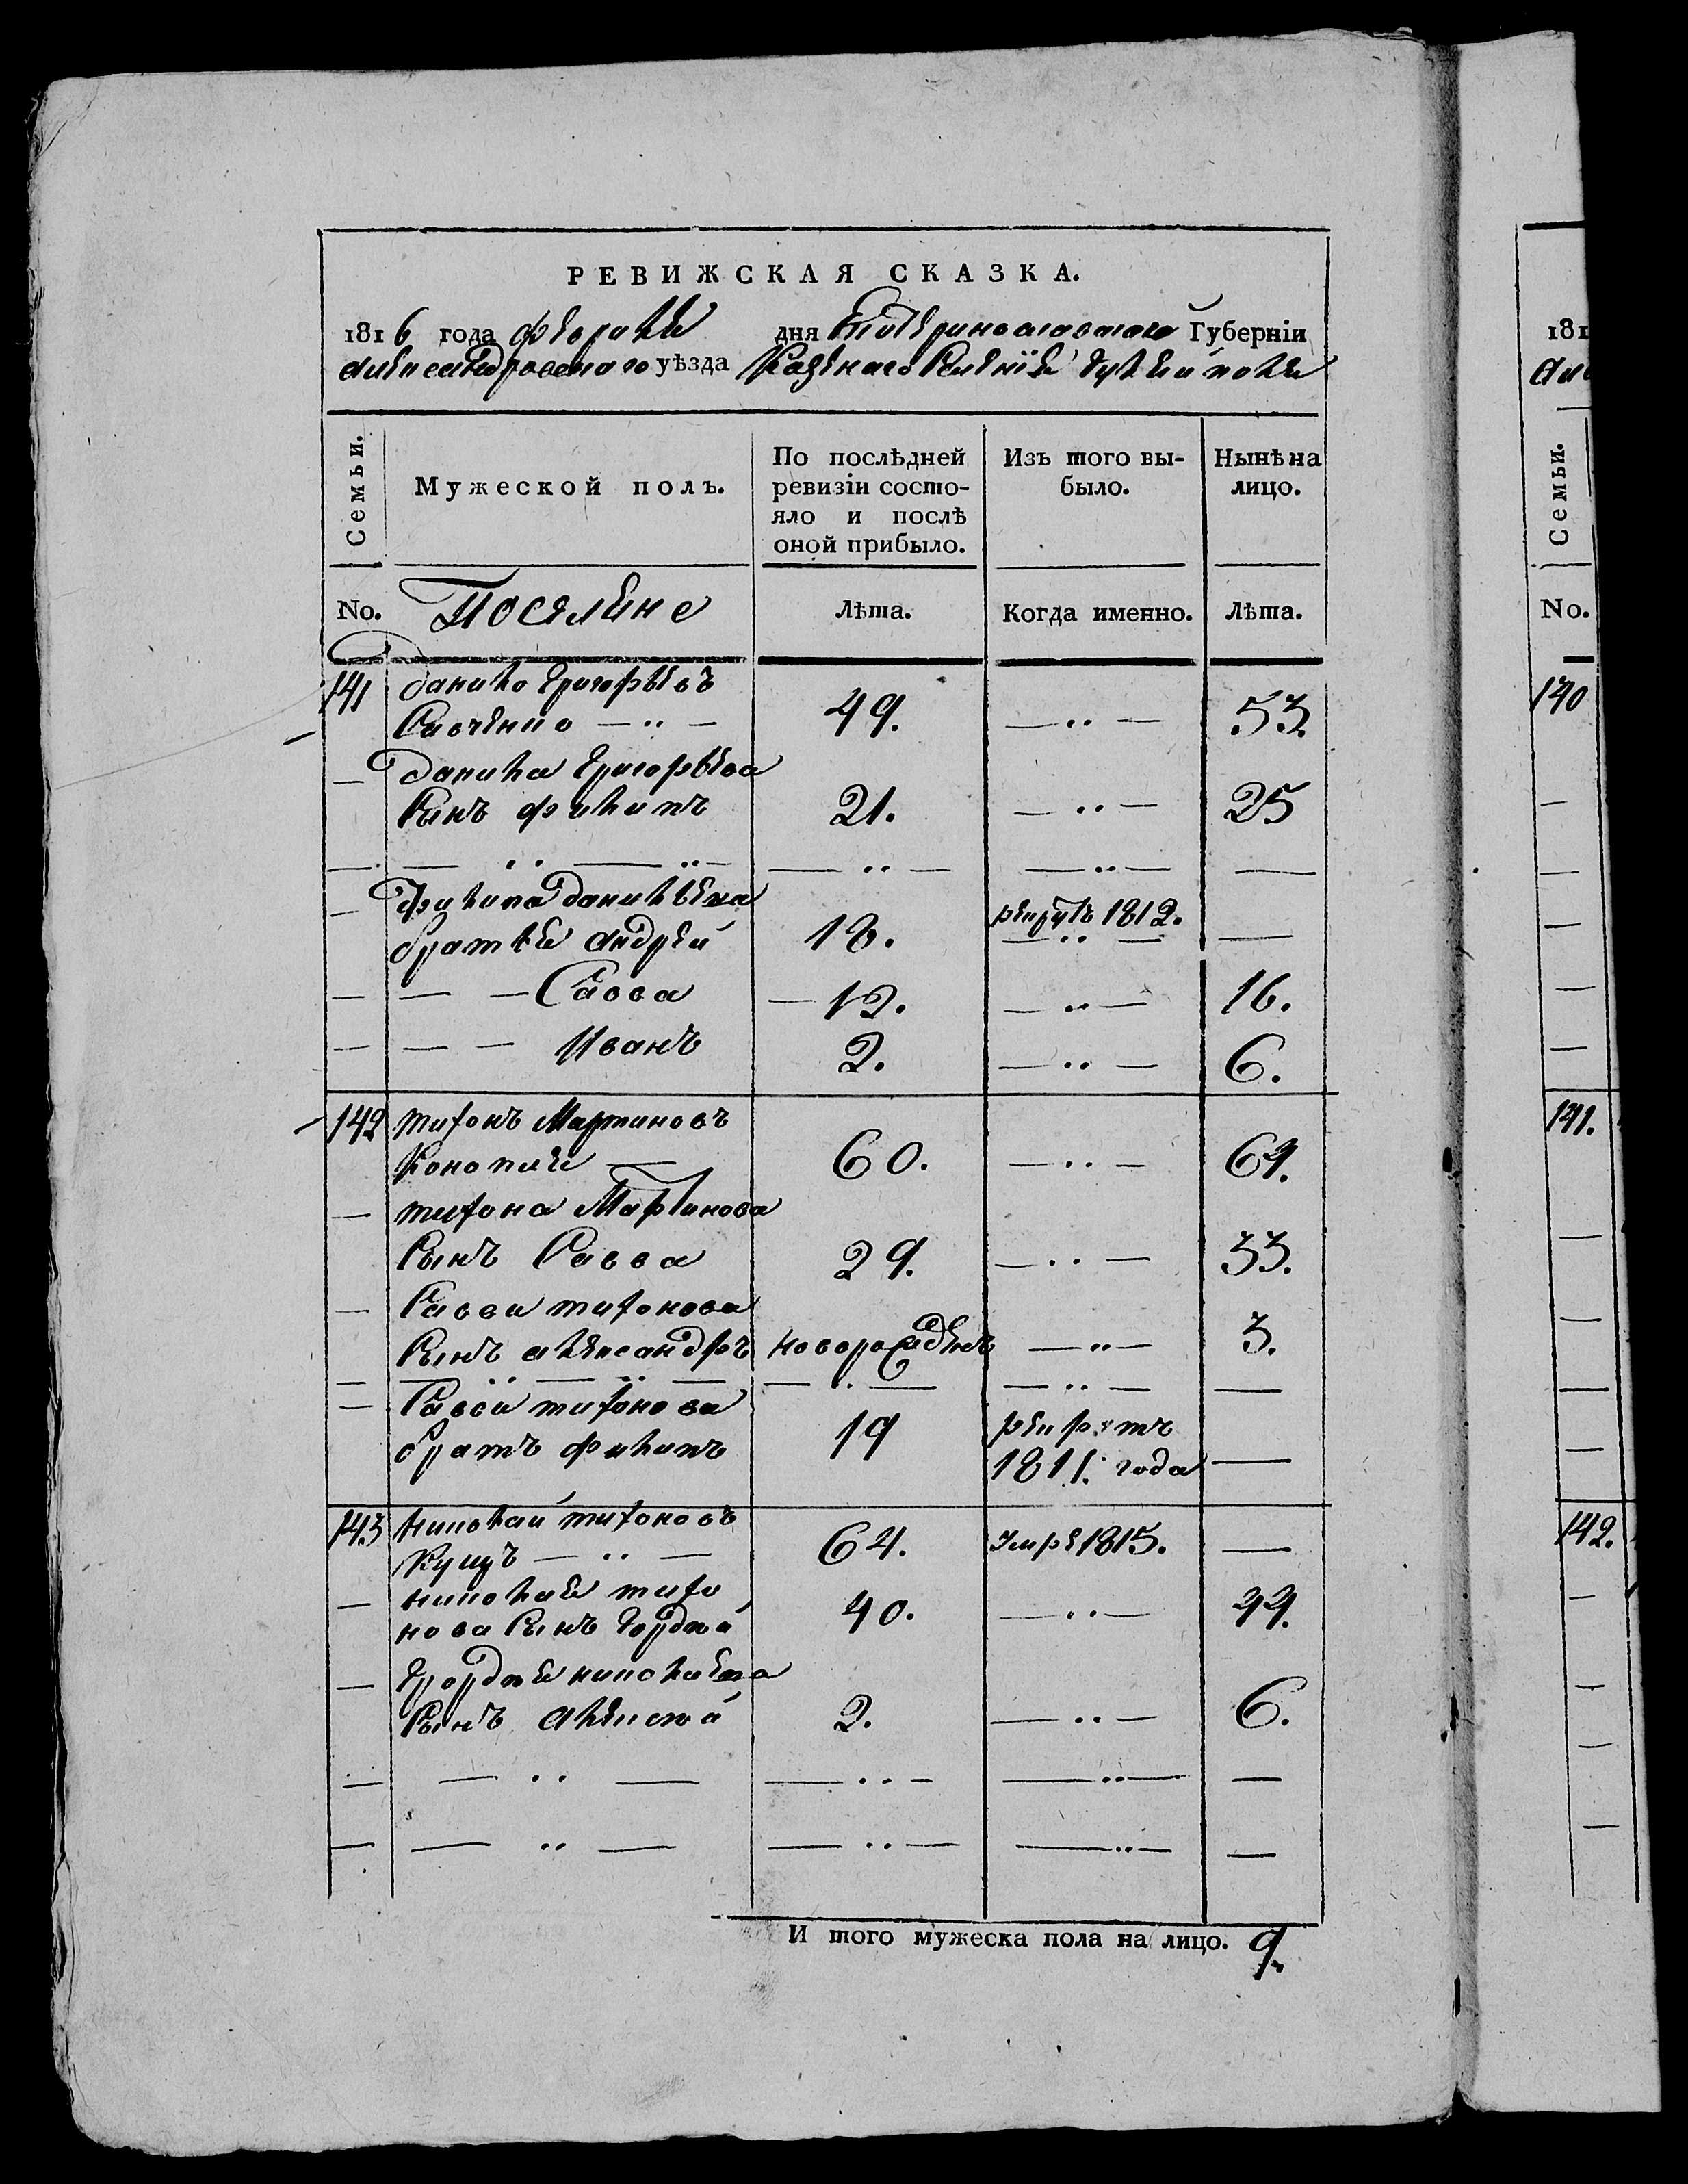 РЕВИЖСКАЯ СКАЗКА.
1816 года февраля дня Екатеринославской Губернiи
Александровского уѣзда Казенаго Селенiя
Семьи.
Мужеской полъ.
По послѣдней ревизiи состо-
яло и послѣ
оной прибыло.
Изъ того вы-
было.
Нынѣ на
лицо.
No. Поселяне Лѣта. Когда именно. Лѣта.
141 данило Григорьевъ
Савченко — ·· — 49. — ·· — 53.
— данила Григорьева
Сынъ филипъ 21. — ·· — 25
— филипа данильева
братья андрей 18. рекрутъ 1812. —
— — — Савва — 12. — ·· — 16.
— — — Иванъ 2. — ·· — 6.
142 тихонъ Мартиновъ
Конопля — 60. — ·· — 64.
— тихона Мартинова
Сынъ Савва 29. — ·· — 33.
— Саввы тихонова
Сынъ александръ новорожденъ — ·· — 3.
— Саввы тихонова
братъ филипъ 19 рекрутъ
1811. года —
143 николай тихоновъ
Куцъ — ·· — 64. Умре 1815. —
— николая тихо
нова Сынъ Гордѣй 40. — ·· — 44.
— Гордѣя николаева
Сынъ алексѣй 2. — ·· — 6.
И того мужеска пола на лицо. 9.
181
Але
Семьи.
No.
140
141.
142.